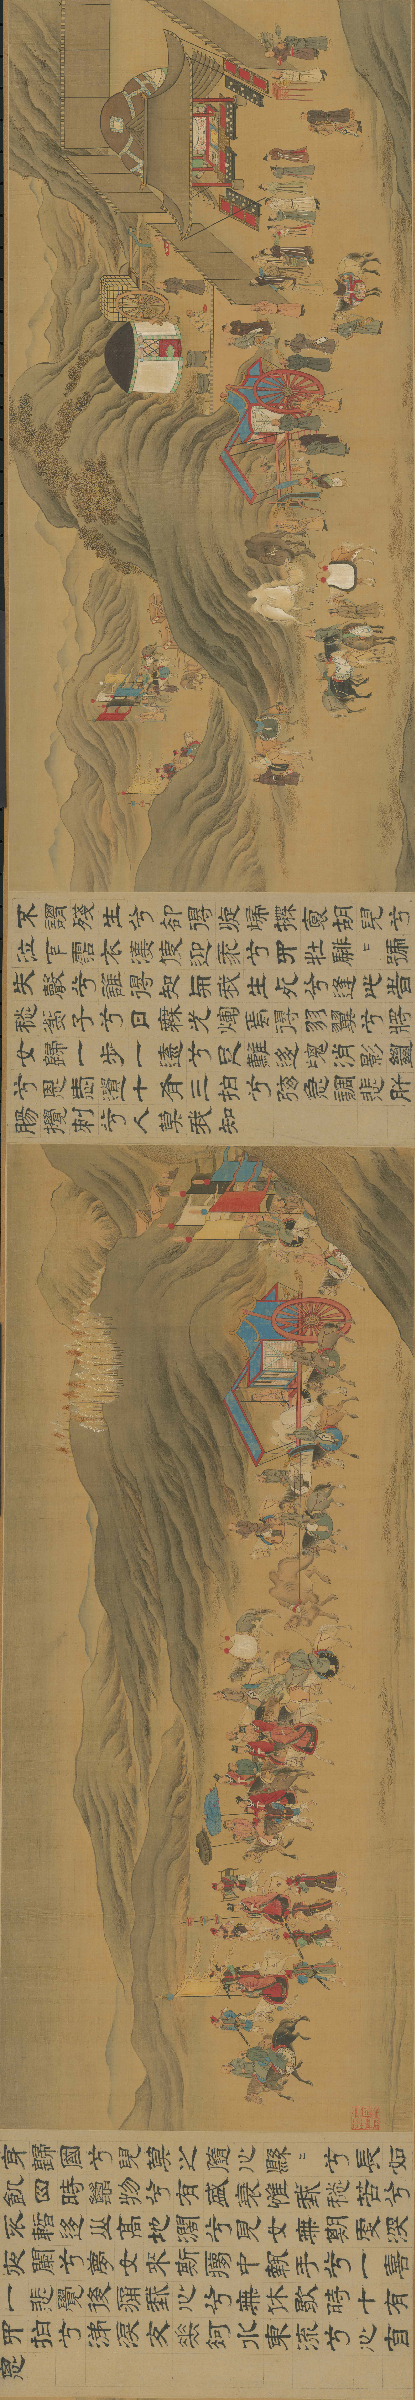 不謂殘生兮卻得旋歸撫裒胡兒兮
泣下霑衣漢使迎我兮四牡騑々號
失聲兮誰得知與我生死兮逢此時
愁為子兮日無光輝焉得羽翼兮將
女歸一步一遠兮足難移魂消影絕
兮恩愛遺十有三拍兮弦急調悲肝
腸攪刺兮人莫我知
身歸國兮兒莫之隨心懸々兮長如
飢四時萬物兮有盛衰惟我愁苦兮
不暫移山高地闊兮見女無期更深
夜闌兮夢女來斯夢中執手兮一喜
一悲覺後痛我心兮無休歇時十有
四拍兮涕淚交垂河水東流兮心自
思